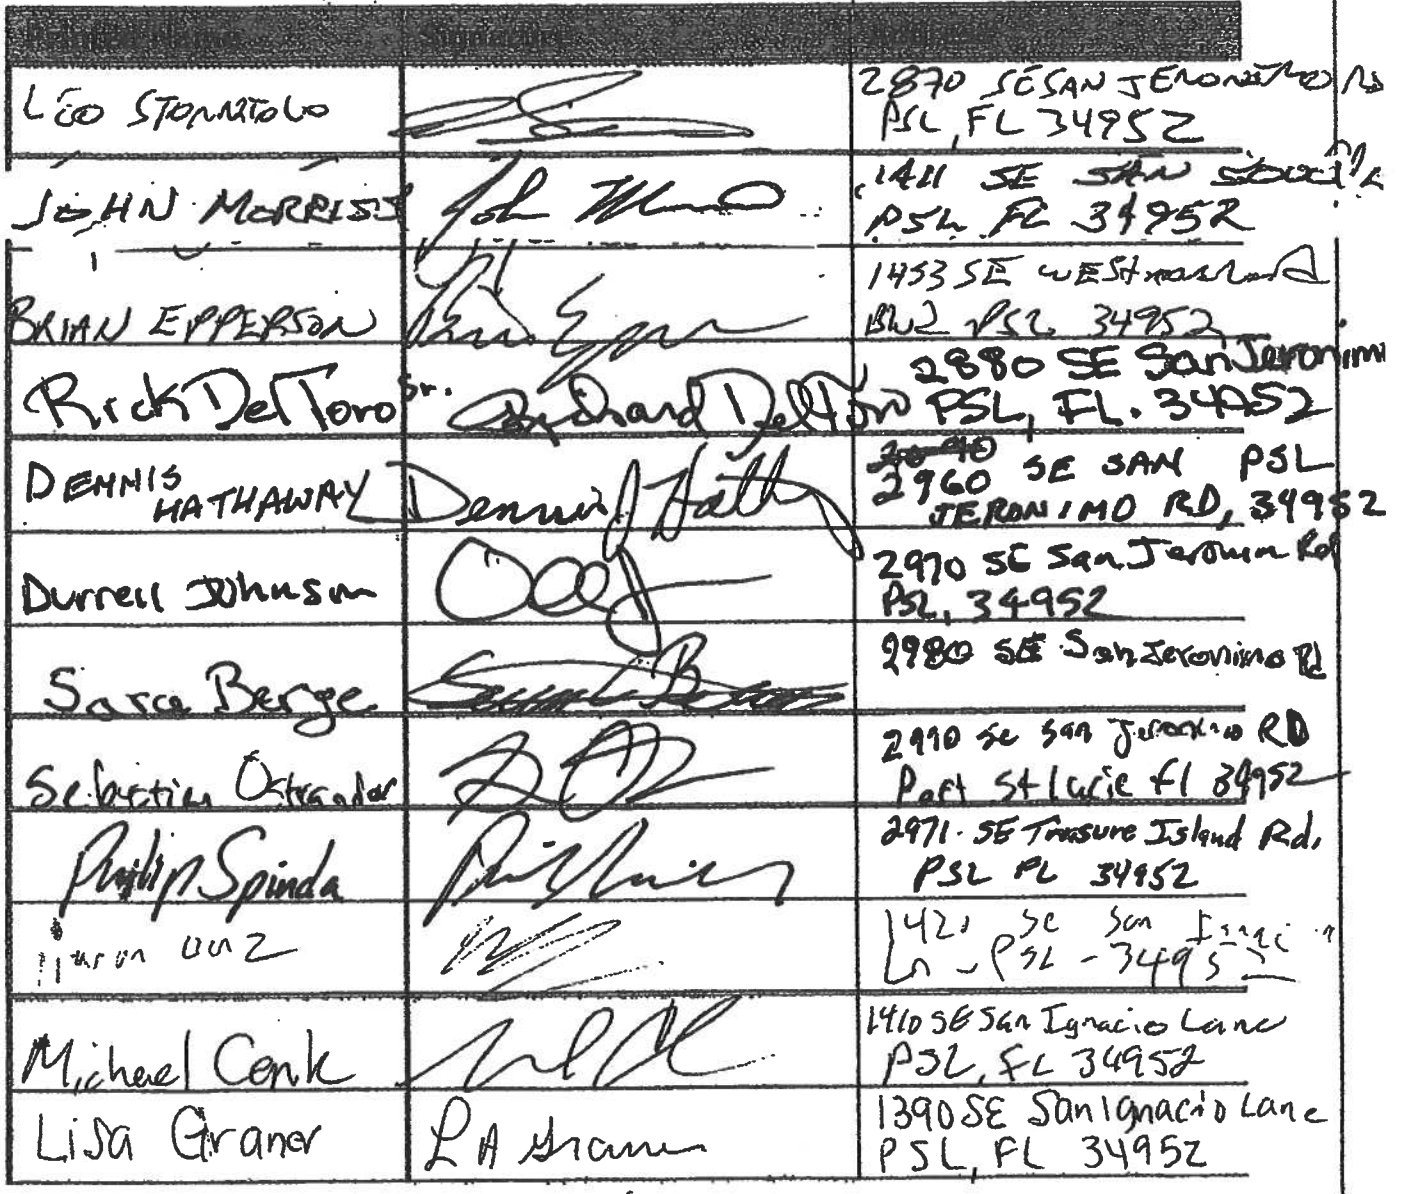 Printed Name Signature
LEO 2870 SE SAN JERONIMO RD
PSL, FL 34952
JOHN MORRISS John 1411 SE SAN SOUCI
PSL FL 34952
1453 SE WESTmoreland
BRIAN EPPERSON Blvd PSL 34952
Rick DelToro Sr. Richard DelToro 2880 SE San Jeronimo
PSL, FL. 34952
DENNIS HATHAWAY Dennis J Hathy 2960 SE SAN PSL
JERONIMO RD, 34952
Durrell Johnson 2970 SE San Jeronimo Rd
PSL, 34952
Sara Berge 2980 SE San Jeronimo Rd
Sebastien Ostrander 2990 Se San Jeronimo RD
Port St Lucie fl 34952
Philip Spinda 2971 SE Treasure Island Rd.
PSL FL 34952
1421 Se San Ignacio
Ln PSL - 34952
Michael Cenk 1410 SE San Ignacio Lane
PSL, FL 34952
Lisa Graner L A Graner 1390 SE San Ignacio Lane
PSL, FL 34952